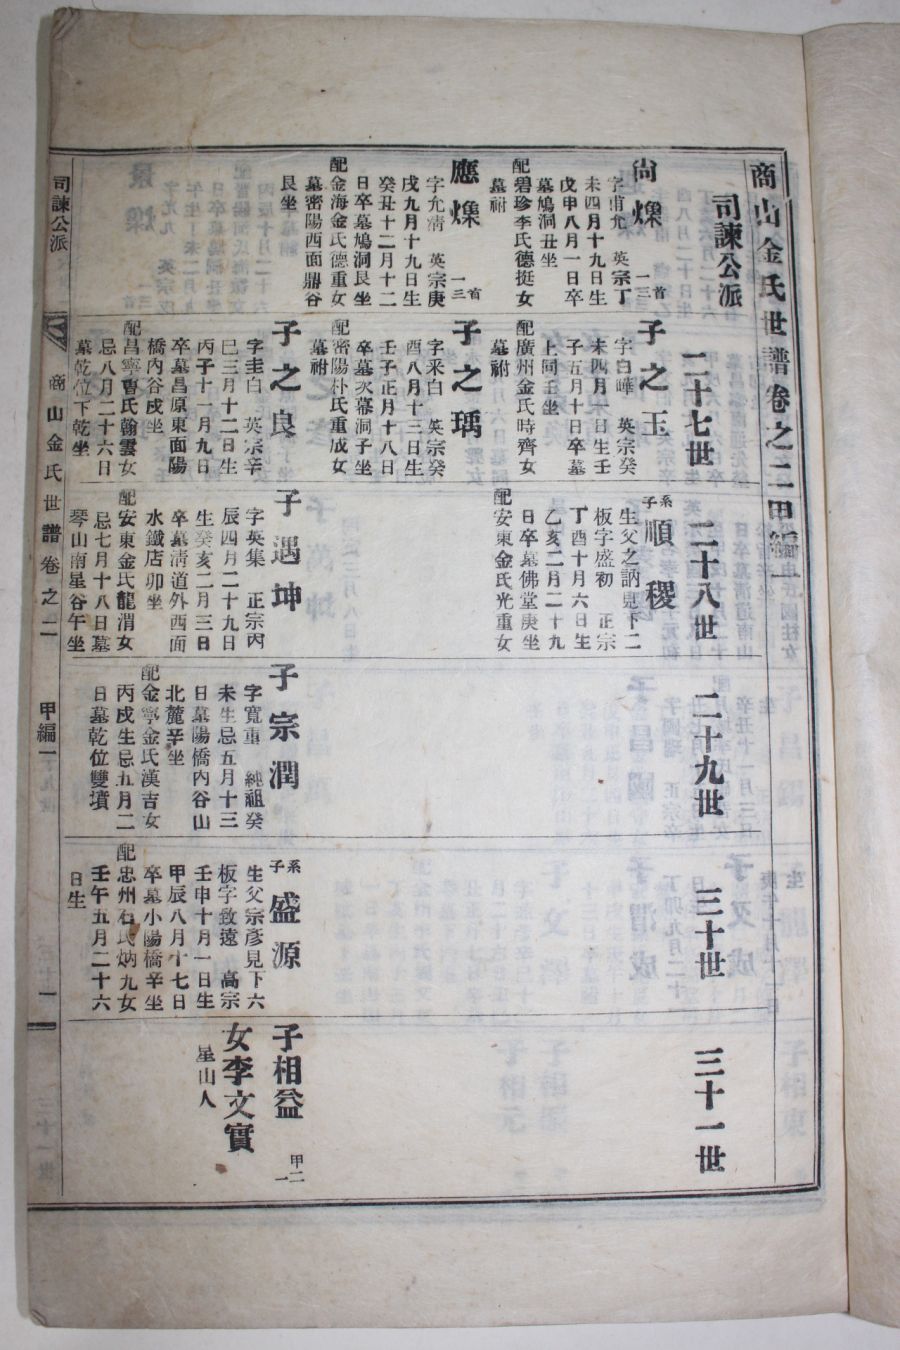 商山金氏世譜卷之二甲編一
司諫公派
尙爍 一三首
字甫允 英宗丁
未四月十九日生
戊申八月一日卒
墓鳩洞丑坐
配碧珍李氏德挺女
墓祔
應爍 一三首
字允清 英宗庚
戌九月十九日生
癸丑十二月十二
日卒墓鳩洞艮坐
配金海金氏德重女
墓密陽西面鼎谷
艮坐
二十七世
子之玉
字白曄 英宗癸
未四月 日生壬
子五月十日卒墓
上同壬坐
配廣州金氏時齊女
墓祔
子之瑀
字采白 英宗癸
酉八月十三日生
壬子正月十八日
卒墓次幕洞子坐
配密陽朴氏重成女
墓祔
子之良
字圭白 英宗辛
巳三月十二日生
丙子十一月九日
卒墓昌原東面陽
橋內谷戌坐
配昌寧曺氏翰雲女
忌八月二十六日
墓乾位下乾坐
二十八世
系子順稷
生父之訥見下二
板字盛初 正宗
丁酉十月六日生
乙亥二月二十九
日卒墓佛堂庚坐
配安東金氏光重女
子遇坤
字英集 正宗丙
辰四月二十九日
生癸亥二月三日
卒墓淸道外西面
水鐵店卯坐
配安東金氏龍渭女
忌七月十八日墓
琴山南星谷午坐
二十九世
子宗潤
字寬重 純祖癸
未生忌五月十三
日墓陽橋內谷山
北麓辛坐
配金寧金氏漢吉女
丙戌生忌五月二
日墓乾位雙墳
三十世
系子盛源
生父宗彥見下六
板字致遠 高宗
壬申十月一日生
甲辰八月十七日
卒墓小陽橋辛坐
配忠州石氏炳九女
壬午五月二十六
日生
三十一世
子相益 甲二一
女李文實
星山人
司諫公派
商山金氏世譜卷之二
甲編一
一